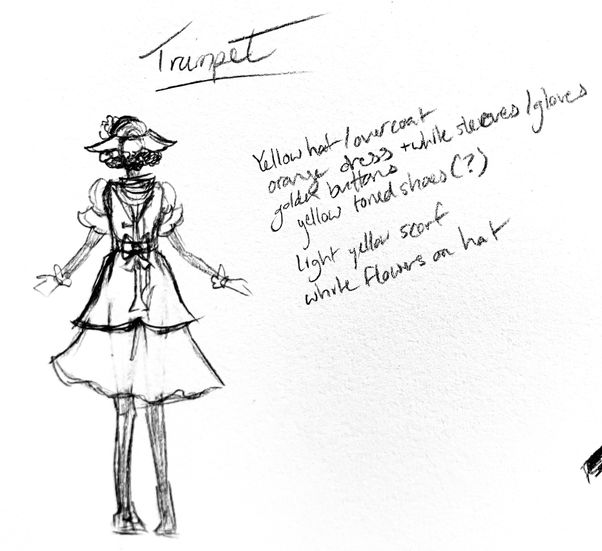 Trumpet
Yellow hat/overcoat
orange dress + white sleeves/gloves
golden buttons
yellow toned shoes(?)
Light yellow scarf
white flowers on hat